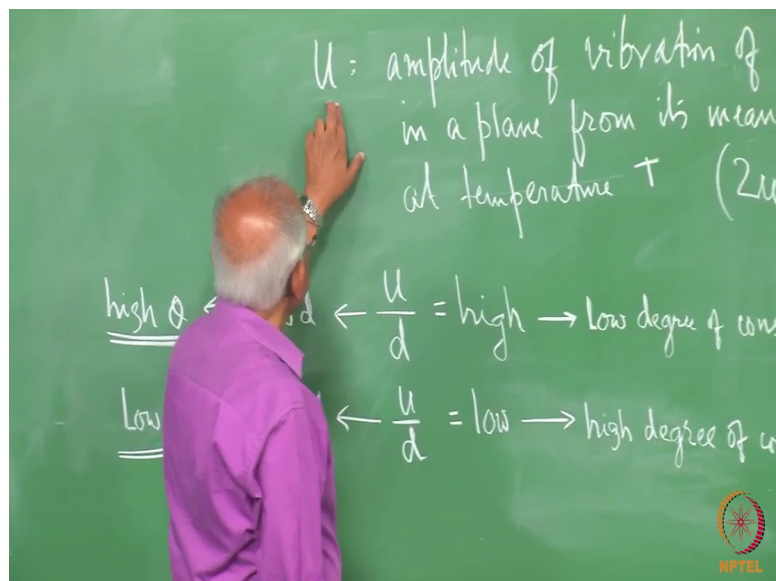 U = amplitude of vibration of
in a plane from its mean
at temperature T (2u
high θ ← d ← u/d = high → Low degree of cons
Low ← u/d = low → high degree of co
NPTEL